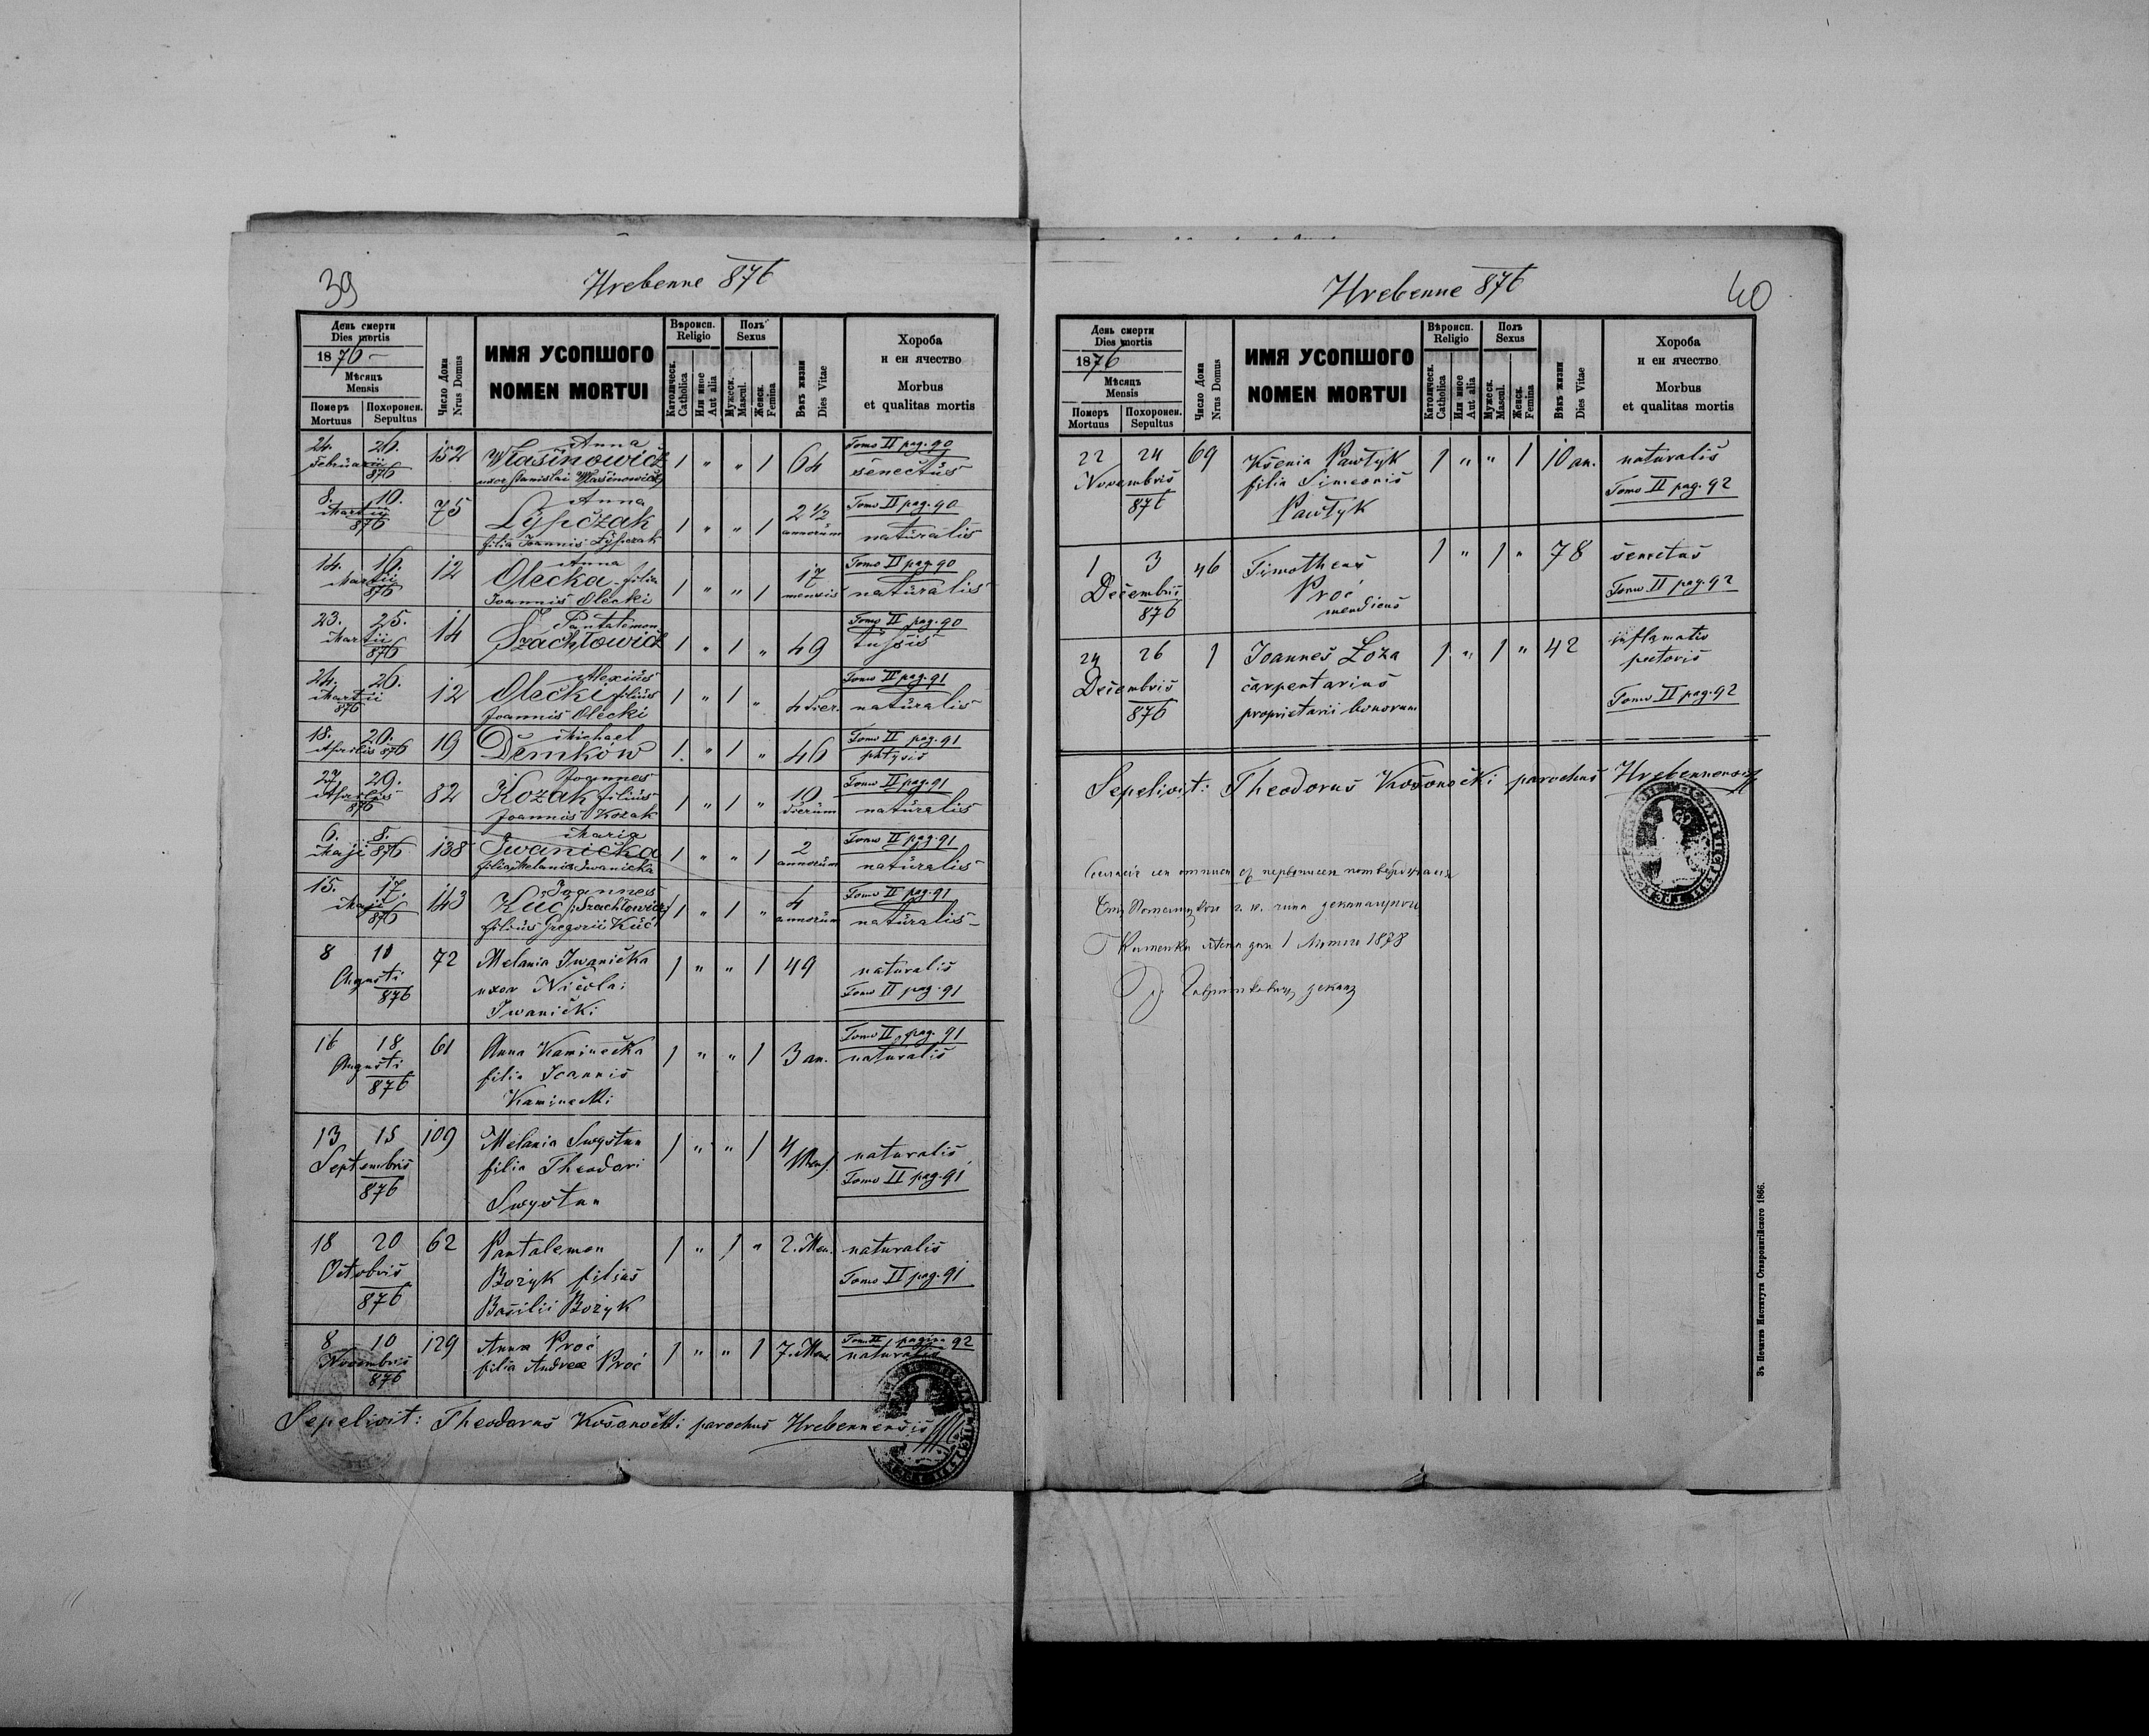 39
Hrebenne 876
День смерти
Dies mortis
1876
Мѣсяць
Mensis
Померъ Похоронен.
Mortuus Sepultus
Число Дома
Nrus Domus
ИМЯ УСОПШОГО
NOMEN MORTUI
Вѣроисп.
Religio
Католическ.
Catholica
Или иное
Aut alia
Полъ
Sexus
Мужеск.
Mascul.
Женск.
Femina
Вѣкъ жизни
Dies Vitae
Хороба
и еи ячество
Morbus
et qualitas mortis
24. 26. 152 Anna 1 " " 1 64 Tomo II pag. 90
Februarii Własinowicz senectus
876 uxor Stanislai Własinowicz
8. 10. 75 Anna 1 " " 1 2 1/2 Tomo II pag. 90
Martii Lypczak annorum naturalis
876 filia Joannis Lypczak
14. 16. 12 Anna 1 " " 1 17 Tomo II pag. 90
Martii Olecka filia mensis naturalis
876 Joannis Olecki
23. 25. 14 Pantalemon 1 " 1 " 49 Tomo II pag. 90
Martii Szachłowicz tussis
876
24. 26. 12 Alexius 1 " 1 " 4 dier. Tomo II pag. 91
Martii Olecki filius naturalis
876 Joannis Olecki
18. 20. 19 Michael 1 " 1 " 46 Tomo II pag. 91
Aprilis 876 Demków phtysis
27. 29. 82 Joannes 1 " 1 " 10 Tomo II pag. 91
Aprilis Kozak filius dierum naturalis
876 Joannis Kozak
6. 8. 138 Maria 1 " " 1 2 Tomo II pag. 91
Maji 876 Iwanicka annorum naturalis
filia Melania Iwanicka
15. 17. 143 Joannes 1 " 1 " 4 Tomo II pag. 91
Maji Kuć (Szachłowicz) annorum naturalis
876 filius Gregorii Kuć
8 10 72 Melania Iwanicka 1 " " 1 49 naturalis
Augusti uxor Nicolai Tomo II pag. 91
876 Iwanicki
16 18 61 Anna Kaminecka 1 " " 1 3 an. Tomo II pag. 91
Augusti filia Joannis naturalis
876 Kaminecki
13 15 109 Melania Swystun 1 " " 1 4 Mens. naturalis
Septembris filia Theodori Tomo II pag. 91
876 Swystun
18 20 62 Pantalemon 1 " 1 " 2. Men. naturalis
Octobris Bożyk filius Tomo II pag. 91
876 Basilii Bożyk
8 10 129 Anna Proć 1 " " 1 7. Mens Tom II pagina 92
Novembris filia Andreae Proć naturalis
876
Sepelivit: Theodorus Kosonocki parochus Hrebennensis
40
Hrebenne 876
День смерти
Dies mortis
1876
Мѣсяць
Mensis
Померъ Похоронен.
Mortuus Sepultus
Число Дома
Nrus Domus
ИМЯ УСОПШОГО
NOMEN MORTUI
Вѣроисп.
Religio
Католическ.
Catholica
Или иное
Aut alia
Полъ
Sexus
Мужеск.
Mascul.
Женск.
Femina
Вѣкъ жизни
Dies Vitae
Хороба
и еи ячество
Morbus
et qualitas mortis
22 24 69 Ksenia Pawłyk 1 " " 1 10 an. naturalis
Novembris filia Simeonis Tomo II pag. 92
876 Pawłyk
1 3 46 Timotheus 1 " 1 " 78 senectus
Decembris Proć Tomo II pag. 92
876 mendicus
24 26 1 Joannes Łoza 1 " 1 " 42 inflamatio
Decembris carpentarius pectoris
876 proprietarii bonorum Tomo II pag. 92
Sepelivit: Theodorus Kosonocki parochus Hrebennensis
1878
Зъ Печатни Института Ставропигійского 1866.